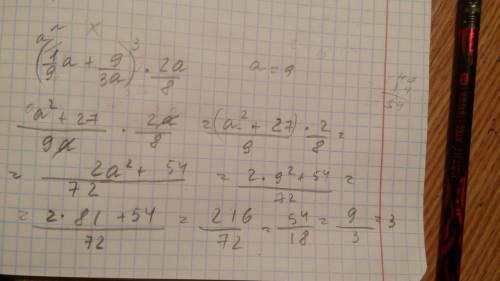 a\ x
(1/9 a + 9/3a)³ · 2a/8 a = 9
a² + 27/9a · 2a/8 = (a² + 27)/9 · 2/8 =
= 2a² + 54/72 = 2 · 9² + 54/72 =
= 2 · 81 + 54/72 = 216/72 = 54/18 = 9/3 = 3